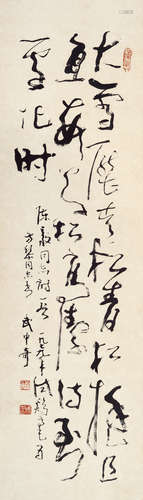 大雪壓青松青松挺且
直要知松高洁待到
雪化时
陈毅同志诗一首
同志
武中奇